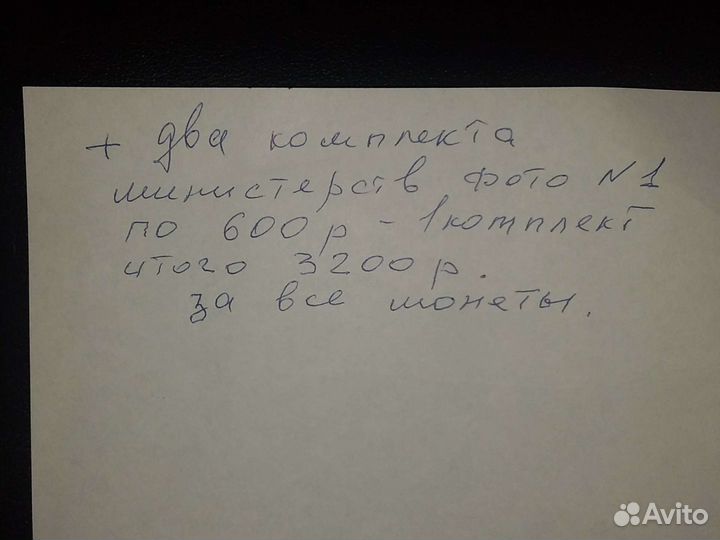 + два комплекта
министерств фото N 1
по 600 р - 1 комплект
итого 3200 р.
за все монеты.
Avito